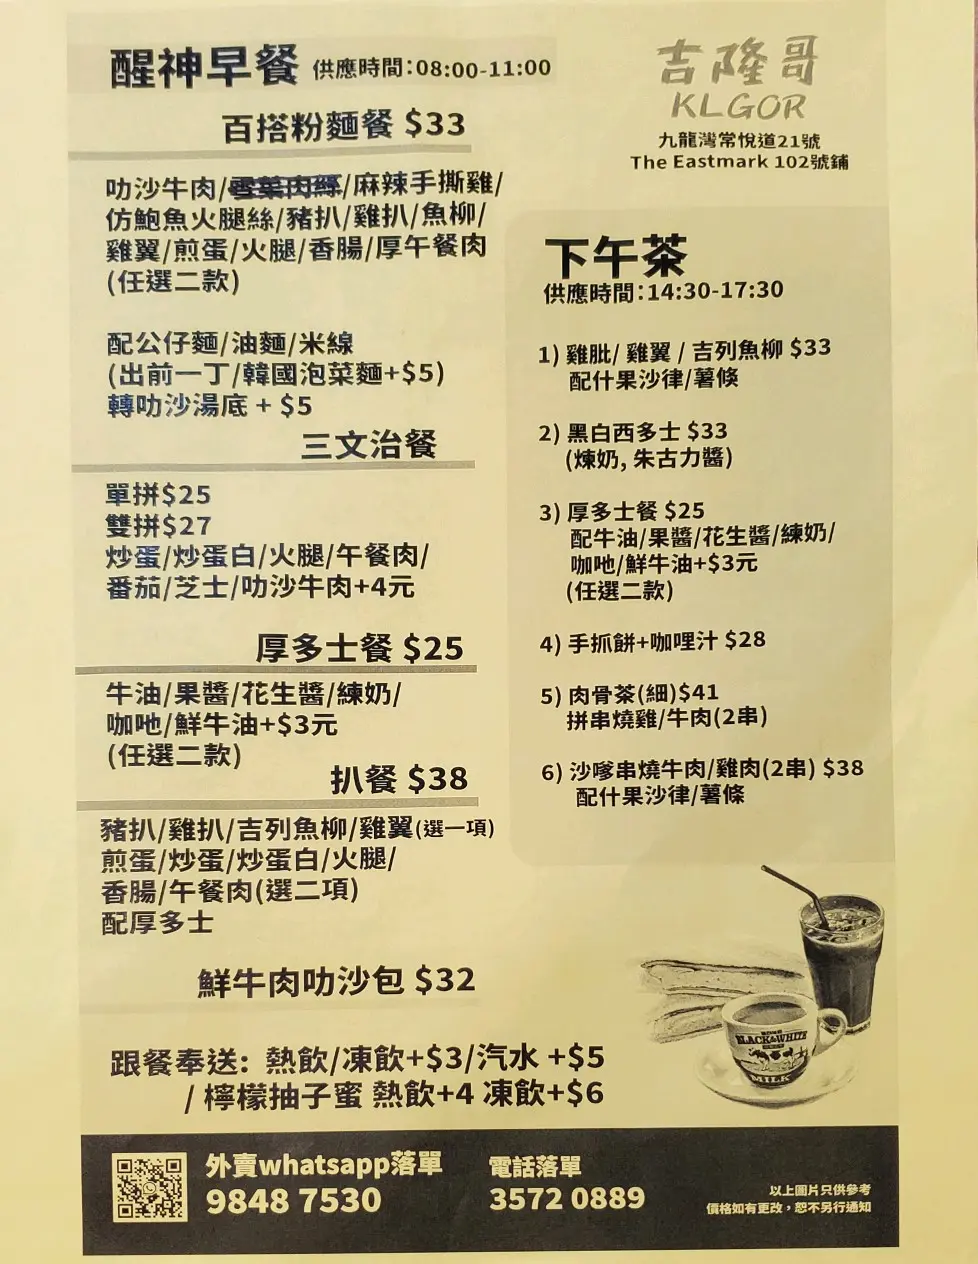 醒神早餐 供應時間:08:00-11:00
百搭粉麵餐 $33
叻沙牛肉/雪菜肉絲/麻辣手撕雞/
仿鮑魚火腿絲/豬扒/雞扒/魚柳/
雞翼/煎蛋/火腿/香腸/厚午餐肉
(任選二款)
配公仔麵/油麵/米線
(出前一丁/韓國泡菜麵+$5)
轉叻沙湯底 + $5
三文治餐
單拼$25
雙拼$27
炒蛋/炒蛋白/火腿/午餐肉/
番茄/芝士/叻沙牛肉+4元
厚多士餐 $25
牛油/果醬/花生醬/練奶/
咖吔/鮮牛油+$3元
(任選二款)
扒餐 $38
豬扒/雞扒/吉列魚柳/雞翼(選一項)
煎蛋/炒蛋/炒蛋白/火腿/
香腸/午餐肉(選二項)
配厚多士
鮮牛肉叻沙包 $32
跟餐奉送: 熱飲/凍飲+$3/汽水 +$5
/ 檸檬抽子蜜 熱飲+4 凍飲+$6
吉隆哥
KLGOR
九龍灣常悅道21號
The Eastmark 102號鋪
下午茶
供應時間:14:30-17:30
1) 雞肶/ 雞翼 / 吉列魚柳 $33
配什果沙律/薯條
2) 黑白西多士 $33
(煉奶, 朱古力醬)
3) 厚多士餐 $25
配牛油/果醬/花生醬/練奶/
咖吔/鮮牛油+$3元
(任選二款)
4) 手抓餅+咖哩汁 $28
5) 肉骨茶(細)$41
拼串燒雞/牛肉(2串)
6) 沙嗲串燒牛肉/雞肉(2串) $38
配什果沙律/薯條
BLACK&WHITE
MILK
外賣whatsapp落單
9848 7530
電話落單
3572 0889
以上圖片只供參考
價格如有更改，恕不另行通知